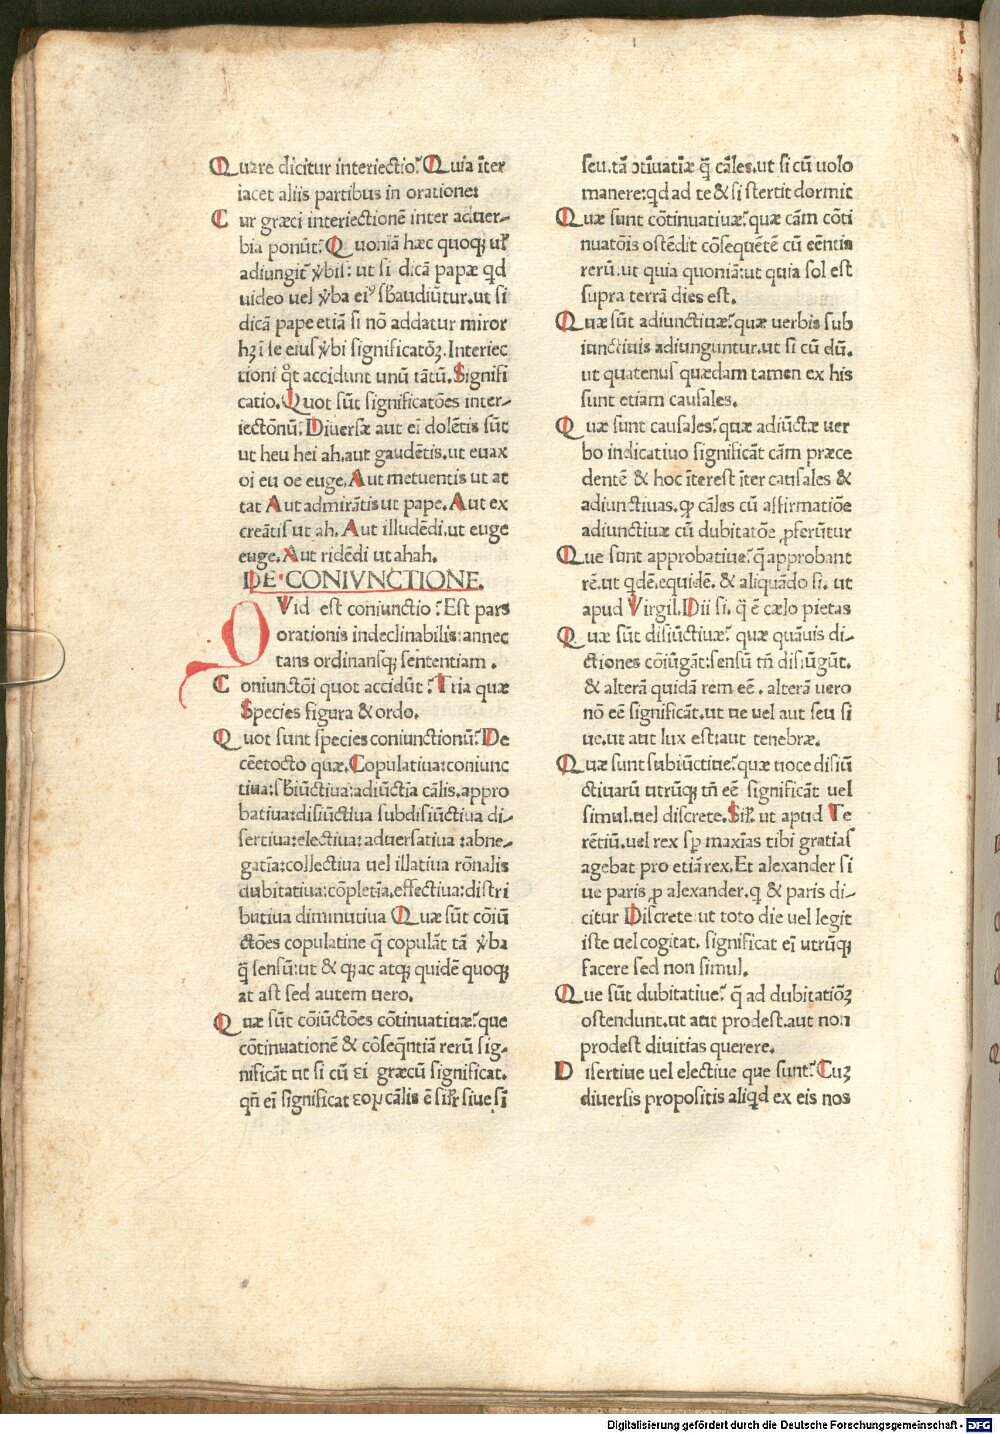 Quare dicitur interiectio? Quia īter
iacet aliis partibus in oratione:
Cur græci interiectionē inter aduer-
bia ponūt? Quoniā hæc quoqꝫ ul̄
adiungit̄ v̄bis: ut si dicā papæ qd
uideo uel v̄ba ei⁹ sb̄audiūtur.ut si
dicā pape etiā si nō addatur miror
hꝫ ī se eius v̄bi significatōꝫ. Interiec
tioni qͦt accidunt unū tātū. Signifi
catio. Quot sūt significatōes inter-
iectōnū? Diuersæ aut ei dolētis sūt
ut heu hei ah.aut gaudētis.ut euax
oi eu oe euge. Aut metuentis ut at
tat Aut admirātis ut pape. Aut ex
creātis ut ah. Aut illudēdi.ut euge
euge. Aut ridēdi ut ahah.
DE CONIVNCTIONE.
QVid est coniunctio? Est pars
orationis indeclinabilis:annec
tans ordinansqꝫ sententiam.
Coniunctōi quot accidūt? Tria quæ
Species figura & ordo.
Quot sunt species coniunctionū? De
cēetocto quæ. Copulatiua:coniunc
tiua:sb̄iūctiua:adiūctīa cālis.appro
batiua:disiūctiua subdisiūctiua di-
sertiua:electiua:aduersatiua:abne-
gatīa:collectiua uel illatiua rōnalis
dubitatiua:cōpletīa.effectiua:distri
butiua diminutiua Quæ sūt cōiū
ctōes copulatine q̄ copulāt tā v̄ba
q̄ sensū:ut & qꝫ ac atqꝫ quidē quoqꝫ
at ast sed autem uero.
Quæ sūt cōiūctōes cōtinuatiuæ? que
cōtinuationē & cōseq̄ntiā rerū sig-
nificāt ut si cū εi græcū significat.
qn̄ ei significat εορ cālis ē sil̄r siue sī
seu.tā ↄtīuatiæ q̄ cāles.ut si cū uolo
manere:qd ad te & si stertit dormit
Quæ sunt cōtinuatiuæ? quæ cām cōti
nuatōis ostēdit cōsequētē cū eēntia
rerū.ut quia quoniā:ut quia sol est
supra terrā dies est.
Quæ sūt adiunctiuæ? quæ uerbis sub
iunctiuis adiunguntur.ut si cū dū.
ut quatenus quædam tamen ex his
sunt etiam causales.
Quæ sunt causales? quæ adiūctæ uer
bo indicatiuo significāt cām præce
dentē & hoc īterest īter causales &
adiunctiuas. qꝫ cāles cū affirmatiōe
adiunctiuæ cū dubitatōe ꝓferūtur
Que sunt approbatiue? q̄ approbant
rē.ut qdē.equidē. & aliquādo si. ut
apud Virgil. Dii si. q̄ ē cælo pietas
Quæ sūt disiūctiuæ? quæ quāuis di-
ctiones cōiūgāt:sensū tn̄ disiūgūt.
& alterā quidā rem eē. alterā uero
nō eē significāt.ut ue uel aut seu si
ue.ut aut lux est:aut tenebræ.
Quæ sunt subiūctiue? quæ uoce disiū
ctiuarū utrūqꝫ tn̄ eē significāt uel
simul.uel discrete. Sil̄r ut apud Te
rētiū.uel rex sꝑ maxīas tibi gratias
agebat pro etiā rex. Et alexander si
ue paris ꝓ alexander.q & paris di-
citur Discrete ut toto die uel legit
iste uel cogitat. significat ei utrūqꝫ
facere sed non simul.
Que sūt dubitatiue? q̄ ad dubitatiōꝫ
ostendunt.ut aut prodest.aut non
prodest diuitias querere.
Disertiue uel electiue que sunt? Cuꝫ
diuersis propositis aliqd ex eis nos
Digitalisierung gefördert durch die Deutsche Forschungsgemeinschaft - DFG